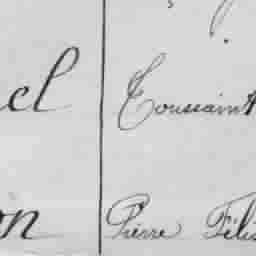 el Toussaint
on Pierre Féli